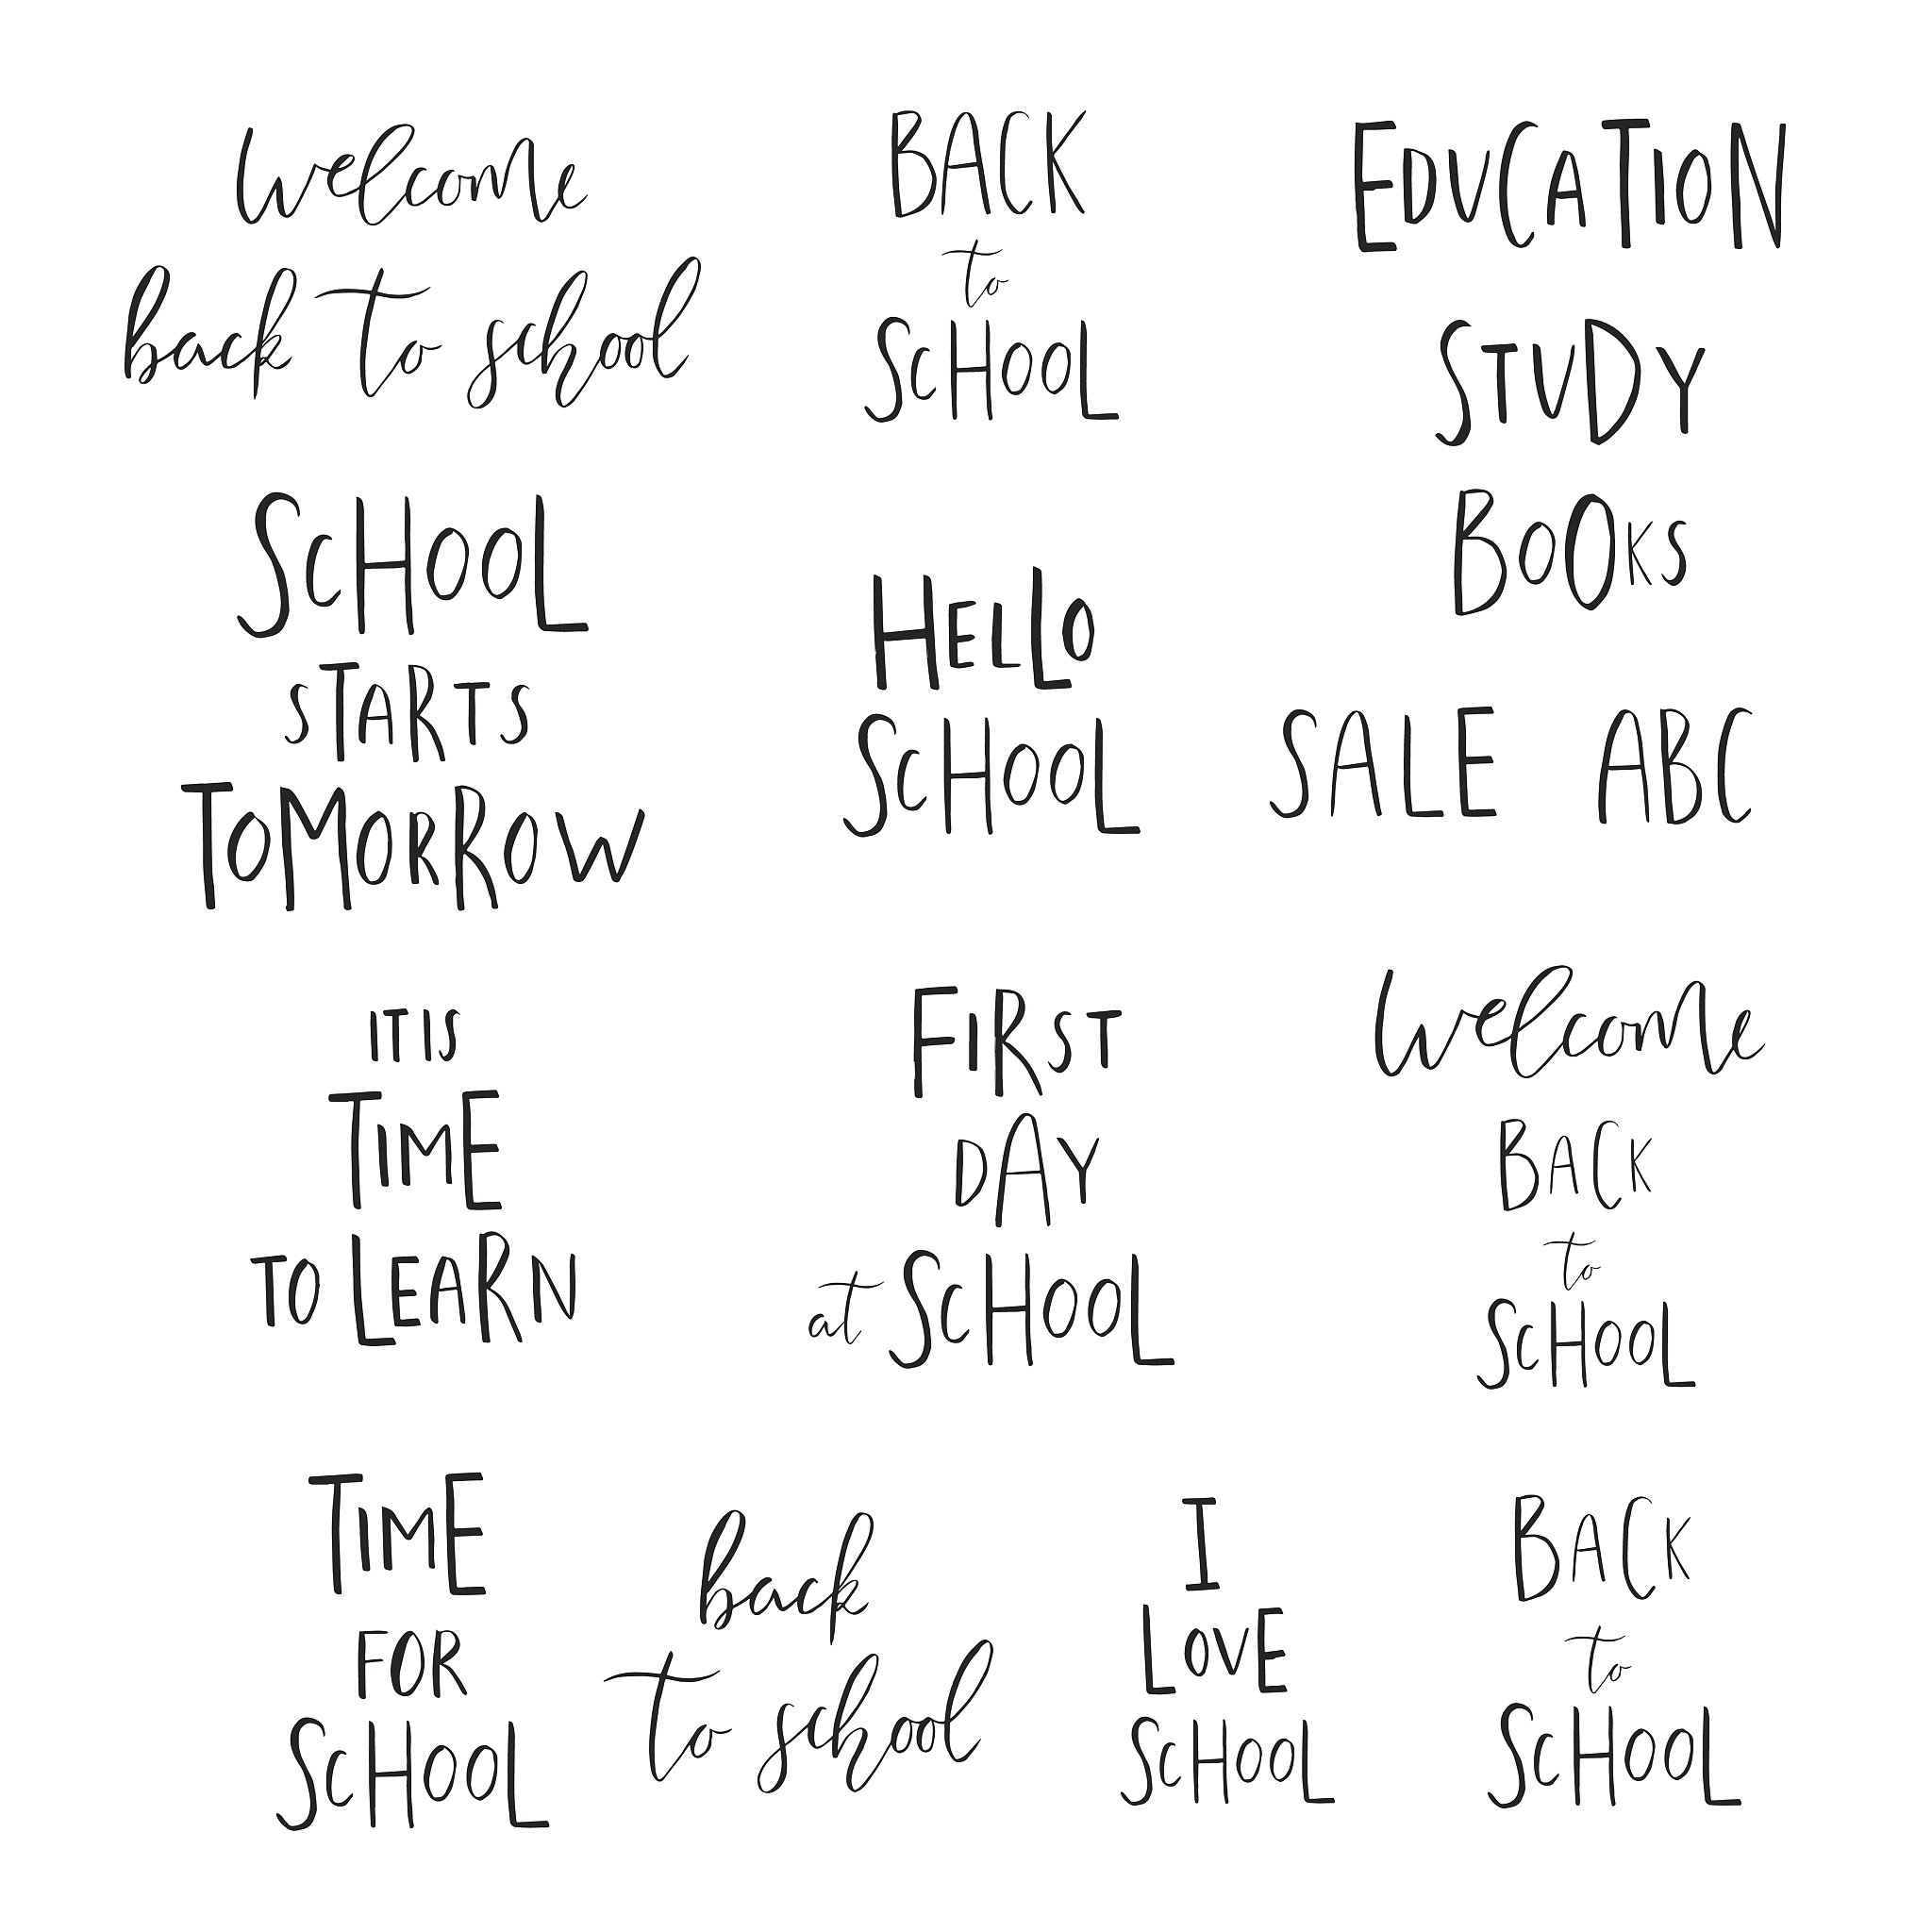 welcome
back to school
BACK
to
SCHOOL
EDUCATION
STUDY
BOOKS
SCHOOL
STARTS
TOMORROW
HELLO
SCHOOL
SALE ABC
IT IS
TIME
TO LEARN
FIRST
DAY
at SCHOOL
welcome
BACK
to
SCHOOL
TIME
FOR
SCHOOL
back
to school
I
LOVE
SCHOOL
BACK
to
SCHOOL